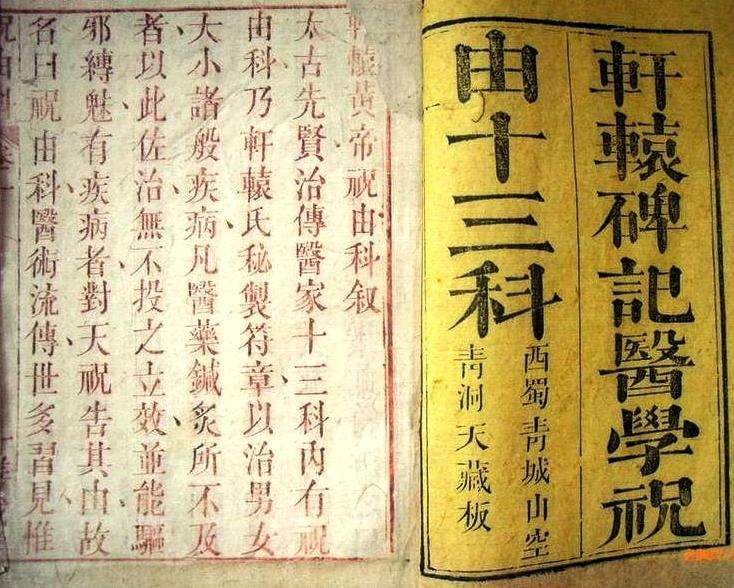 軒轅碑記醫學祝
由十三科
西蜀青城山空
青洞天藏板
軒轅黃帝祝由科叙
太古先賢治傳醫家十三科內有祝
由科乃軒轅氏秘製符章以治男女
大小諸般疾病凡醫藥鍼炙所不及
者以此佐治無不投之立效並能驅
邪縛魅有疾病者對天祝告其由故
名曰祝由科醫術流傳世多習見惟
祝由科